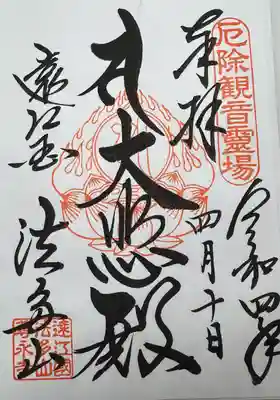 厄除観音靈場
奉拝
令和四年
四月十日
大悲殿
遠江国
法多山
遠江國
法多山
尊永寺